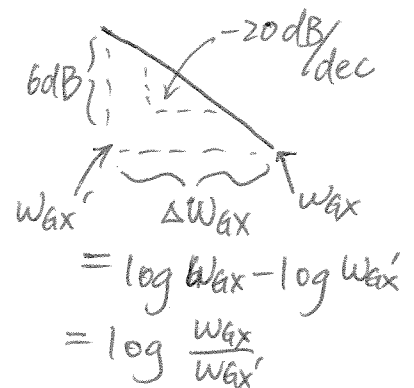 -20dB/dec
6dB
WGX'
ΔWGX
WGX
= log WGX - log WGX'
= log WGX/WGX'